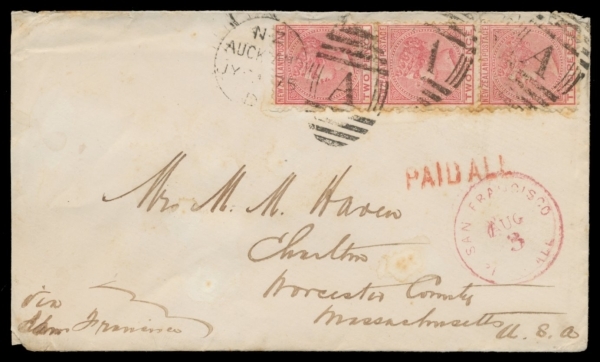 N.Z
AUCKLAND
JY
75
A
A
A
TWO
TWO
TWO
PAID ALL
SAN FRANCISCO
AUG
3
ALL
Mrs. M. M. Haven
Charlton
Worcester County
Massachusetts
U. S. A
via
San Francisco